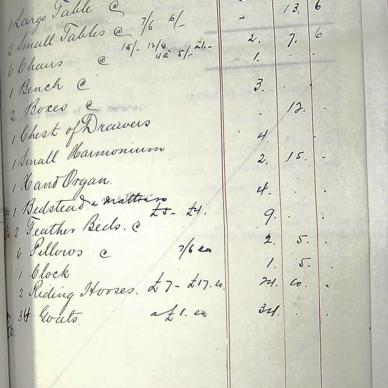 1 Large Table @ - 13. 6
2 Small Tables @ 7/6 6/- 
6 Chairs @ 2. 7. 6
1 Bench @ 1. . .
2 Boxes @ 3. . .
1 Chest of Drawers . 12. .
1 Small Harmonium 4. . .
1 Hand Organ. 2. 15. .
1 Bedstead & mattrass 4. . .
2 Feather Beds. @ £5- £4. 9. . .
6 Pillows @ 7/6 ea 2. 5. .
1 Clock 1. 5. .
2 Riding Horses. £7- £17. 24. . .
34 Goats. a £1. ea 34. . .